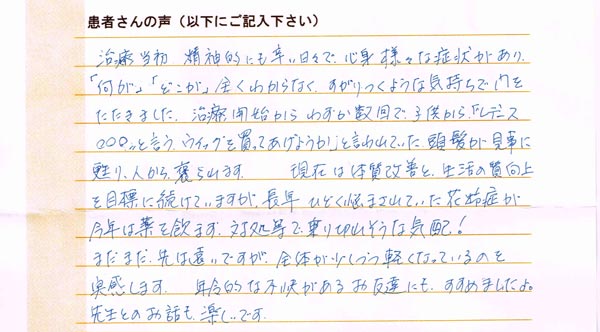 患者さんの声（以下にご記入下さい）
治療当初 精神的にも辛い日々で、心身様々な症状があり、
「何が」「どこが」全くわからなく、すがりつくような気持ちで門を
たたきました。治療開始から わずか数回で、子供から、「レディス
○○○っと言う、ウィッグを買ってあげようか」と言われていた、頭髪が見事に
甦り、人から、褒られます。 現在は体質改善と、生活の質向上
を目標に続けていますが、長年 ひどく悩まされていた花粉症が
今年は薬を飲まず、対処等で、乗り切れそうな気配！
まだまだ、先は遠いですが、全体が少しづつ軽くなっているのを
実感します。 年令的な不快があるお友達にも、すすめましたよ。
先生とのお話も、楽しいです。